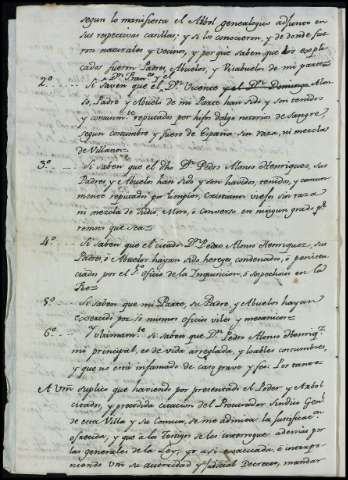 segun lo manifiesta el Arbol genealogico adjunto en
sus respectivas casillas; y si los conocieron, y de donde fue
ron naturales y Vecinos, y por que saben que los expli
cados fueron Padres, Abuelos, y Visabuelos de mi parte
Dn. Franco. y el
2º.. Si saven que el Dn. Vicente y el Dn. Domingo Alon
so, Padre y Abuelo de mi Parte han sido y son tenidos
y comunmte. reputados por hijos dalgo notorios de sangre,
segun costumbre y fuero de España sin raza, ni mezcla
de Villanos.
3º.. Si saben que el dho Dn. Pedro Alonso Henriquez, sus
Padres, y Abuelos han sido y son havidos, tenidos, y comun
mente reputados por limpios, Cristianos viejos sin raza
ni mezcla de Judio, Moro, ó converso en ningun grado pr
remoto que sea
4º.. Si saben que el citado Dn. Pedro Alonso Henriquez, sus
Padres, ó Abuelos hayan sido hereges, condenados, ó peniten
ciados por el Sto. oficio de la Inquisicion, ó sospechosos en la
Fee
5º.. Si saben que mi Parte, su Padre, y Abuelos hayan
exercido por si mismos oficios viles y mecanicos
6º.. Y ultimamte. si saben que Dn. Pedro Alonso Henriqz.
mi principal, es de vida arreglada, y loables costumbres,
y que no está infamado de caso grave y feo. Por tanto
A Vm suplico que haviendo por presentado el Poder y Arbol
citado, y precedida citacion del Procurador Sindico Genl.
de esta Villa y su Comun, se me admita la justificacn.
ofrecida, y que á los Testigos se les interrogue ademas por
las generales de la Ley, y asi evacuada, é interpo
niendo Vm su autoridad y judicial Decreto, mandar